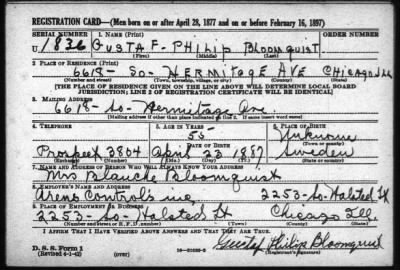 REGISTRATION CARD—(Men born on or after April 28, 1877 and on or before February 16, 1897)
SERIAL NUMBER 1. NAME (Print) ORDER NUMBER
U 1836 GUSTAF - PHILIP BLOOMQUIST
(First) (Middle) (Last)
2. PLACE OF RESIDENCE (Print)
6618 - SO - HERMITAGE AVE CHICAGO ILL
(Number and street) (Town, township, village, or city) (County) (State)
[THE PLACE OF RESIDENCE GIVEN ON THE LINE ABOVE WILL DETERMINE LOCAL BOARD
JURISDICTION; LINE 2 OF REGISTRATION CERTIFICATE WILL BE IDENTICAL]
3. MAILING ADDRESS
6618 - So - Hermitage Ave.
(Mailing address if other than place indicated on line 2. If same insert word same)
4. TELEPHONE 5. AGE IN YEARS 6. PLACE OF BIRTH
55 Unknown
DATE OF BIRTH (Town or county)
Prospect 3804 April 23 1887 Sweden
(Exchange) (Number) (Mo.) (Day) (Yr.) (State or country)
7. NAME AND ADDRESS OF PERSON WHO WILL ALWAYS KNOW YOUR ADDRESS
Mrs Blanche Bloomquist
8. EMPLOYER'S NAME AND ADDRESS
Arens Controls inc 2253 - So - Halsted St
9. PLACE OF EMPLOYMENT OR BUSINESS
2253 - So - Halsted St Chicago Ill.
(Number and street or R. F. D. number) (Town) (County) (State)
I AFFIRM THAT I HAVE VERIFIED ABOVE ANSWERS AND THAT THEY ARE TRUE.
D. S. S. Form 1 Gustaf Philip Bloomquist
(Revised 4-1-42) (over) (Registrant's signature)